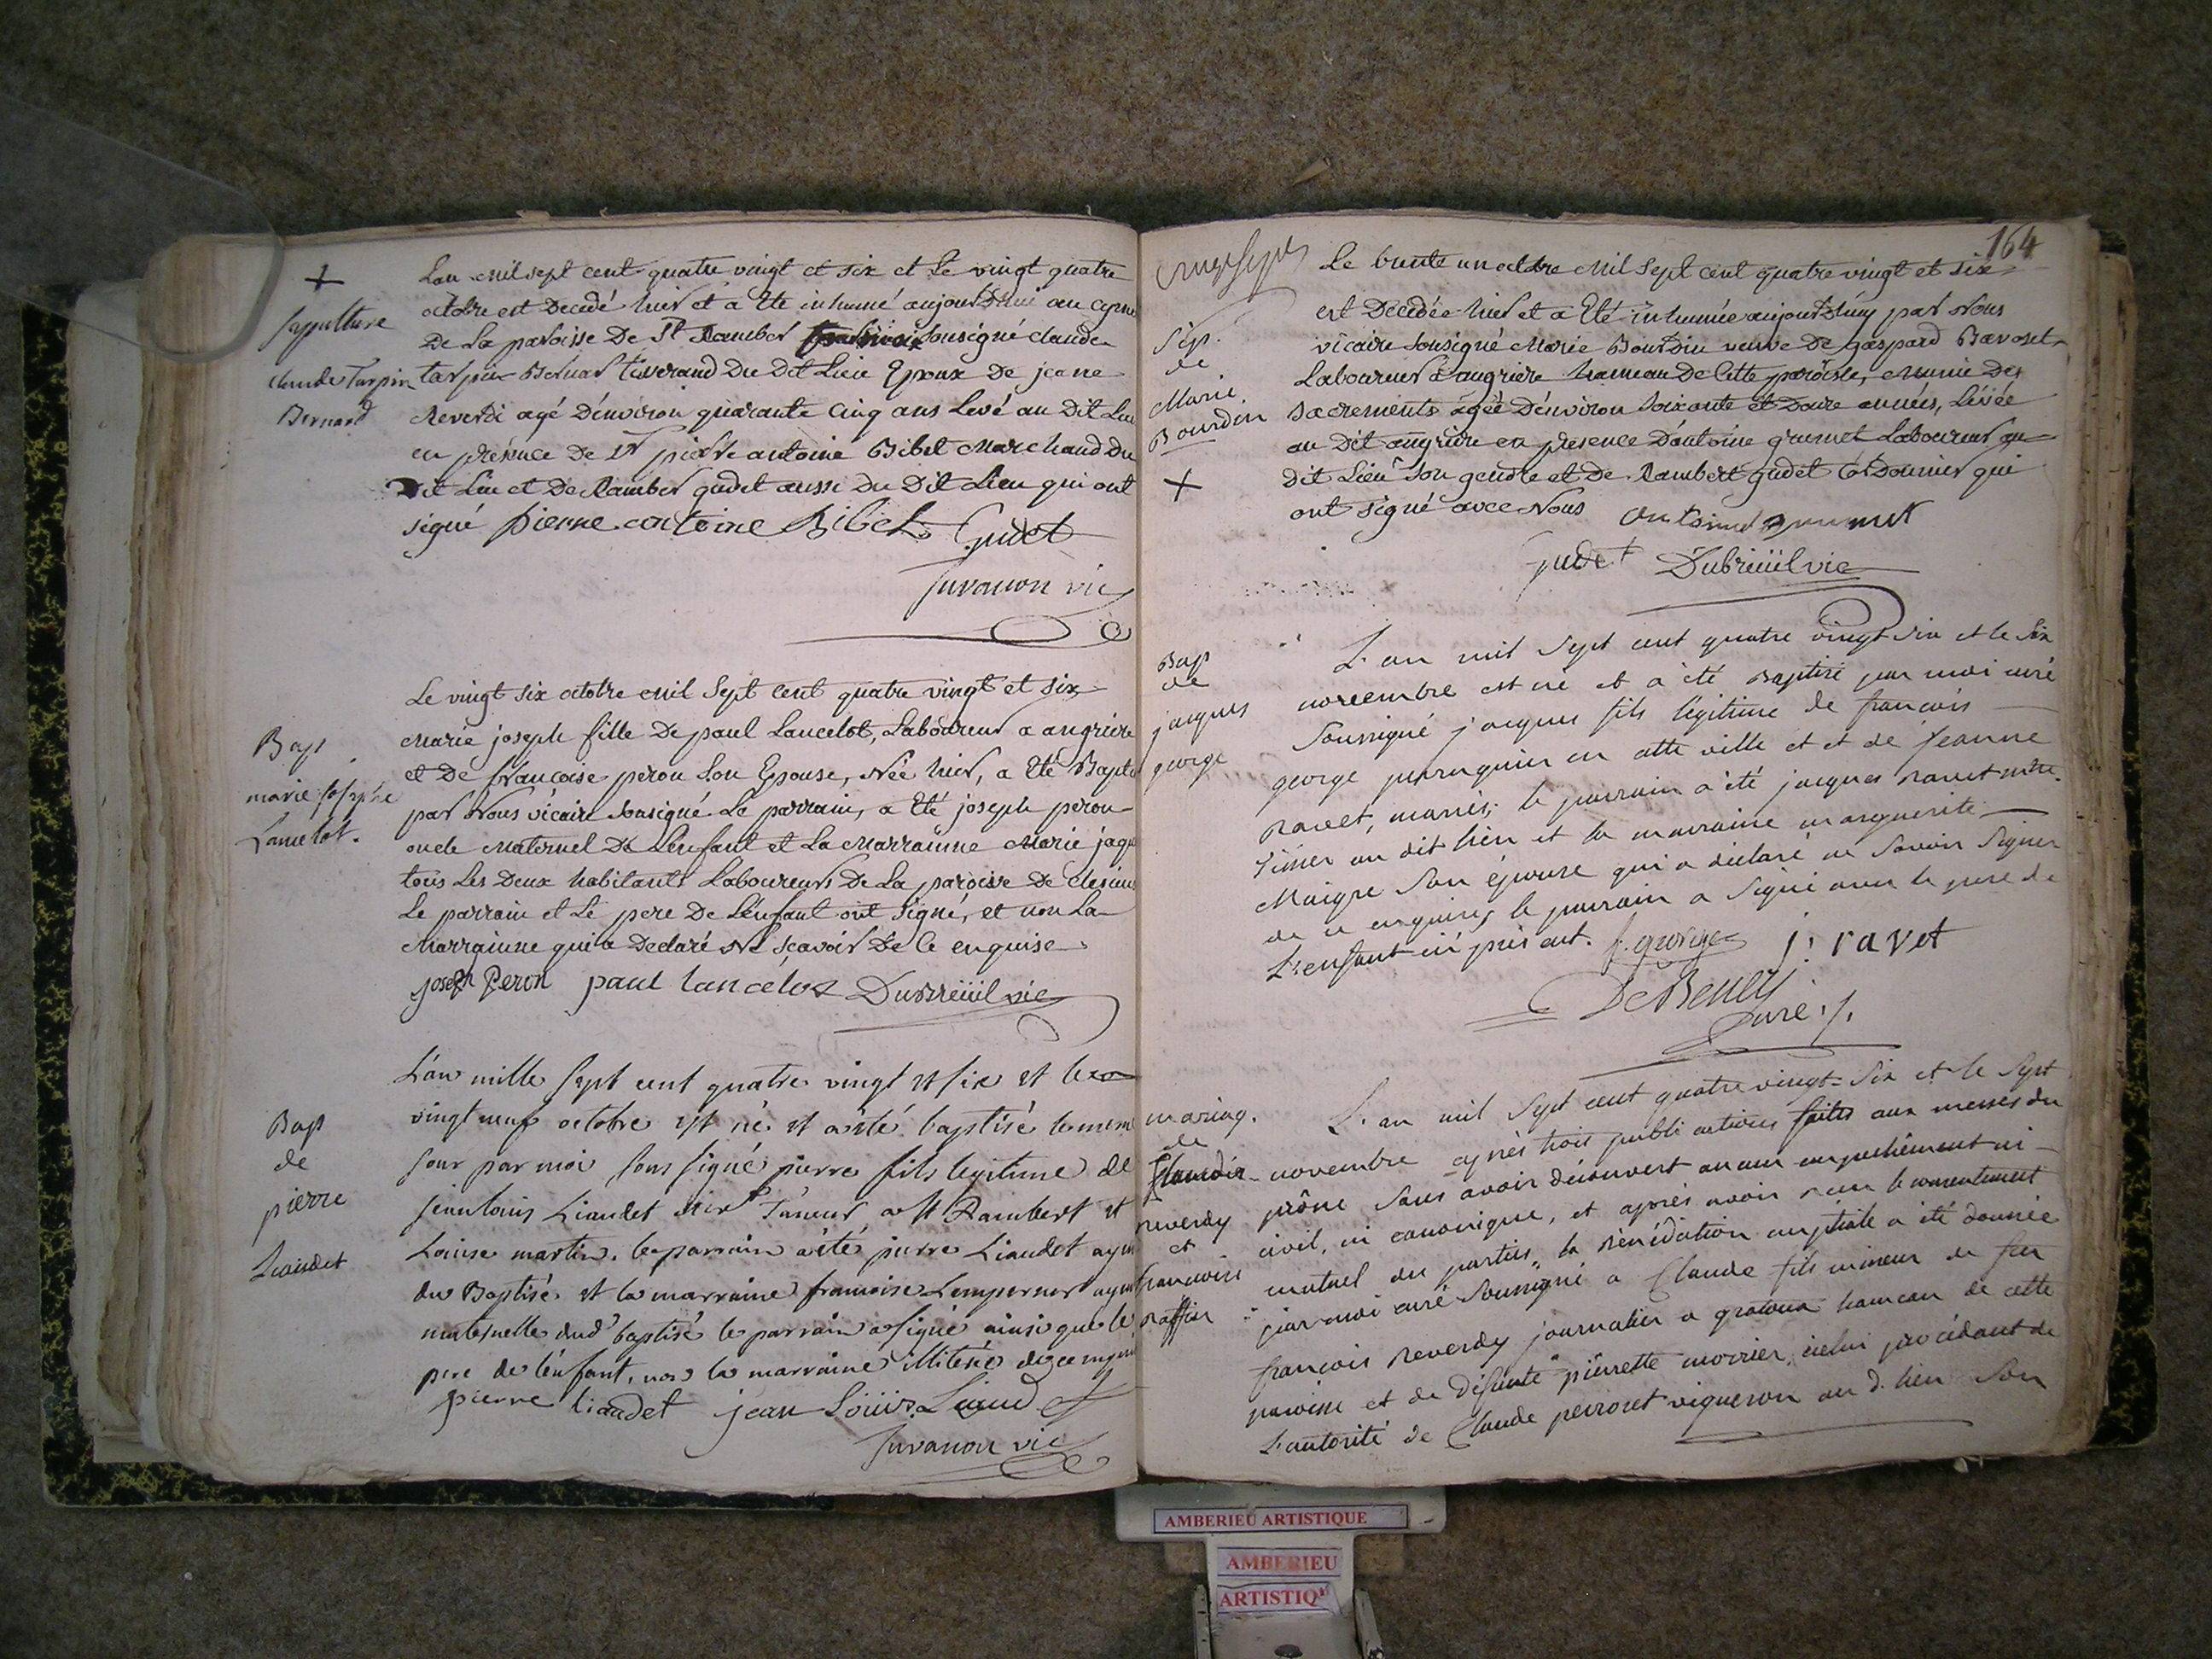 +
Sepulture
claude Tarpin
Bernard
L'an mil sept cent quatre vingt et six et Le vingt quatre
octobre est Decedé hier et a Eté inhumé aujourd'hui au
De La paroisse De St Rambert sousigné claude
tarpin Bernar tisserand Du Dit Lieu Epoux De jeane
Reverdi agé D'environ quarante cinq ans Levé au Dit Lieu
en présence de Sr pierre antoine Bibet Marchand Du
Dit Lieu et De Rambert gudet aussi Du Dit Lieu qui ont
signé pierre antoine Bibet Gudet
Juvanon vic
Bap
marie josephe
Lancelot.
Le vingt six octobre mil Sept Cent quatre vingt et six
Marie joseph fille De paul Lancelot, Laboureur a angriere
et De francoise peron Son Epouse, Née hier, a Eté Baptisé
par Nous vicaire sousigné Le parrain, a Eté joseph peron
oncle Maternel De L'enfant et La Marrainne Marie
tous Les Deux habitants Laboureurs De La paroisse De
Le parrain et Le pere De L'enfant ont Signé, et non La
Marrainne qui a Declaré Ne sçavoir De Ce enquise
joseph Peron paul lancelot Dubreüil vic
Bap
de
pierre
Liaudet
L'an mille sept cent quatre vingt et six et le
vingt neuf octobre est né et a été baptisé le meme
jour par moi sous signé pierre fils legitime de
jean louis Liaudet Taneur a St Rambert et
Louise martin. le parrain a été pierre Liaudet ayeul
du Baptisé et la marraine francoise Lempereur ayeule
maternelle dud' baptisé le parrain a signé ainsi que le
pere de l'enfant, non la marraine illiterée de ce enquise
pierre liaudet jean Loüis Liaudet
Juvanon vic
164
Sép.
de
Marie
Bourdin
+
Le trente un octobre Mil Sept cent quatre vingt et six
est Decédée hier et a Eté inhumée aujourd'huy par Nous
vicaire Sousigné Marie Bourdin veuve De gaspard Bavoset
Laboureur a angriere hameau De Cette paroisse, Munie Des
Sacrements agée D'environ Soixante et Douze années, Levée
au Dit angriere en presence D'antoine grumet Laboureur au
dit Lieu Son gendre et De Rambert gudet Cordonnier qui
ont signé avec Nous antoine grumet
gudet Dubreüil vic
Bap
de
jacques
george
L'an mil sept cent quatre vingt six et le six
novembre est né et a été Baptisé par moi curé
soussigné jacques fils légitime de francois
george perruquier en cette ville et et de jeanne
Ravet, mariés; le parrain a été jacques ravet mtre
au dit lieu et la marraine marguerite
Maigre son épouse qui a déclaré ne savoir signer
de ce enquise, le parrain a signé avec le pere de
L'enfant ici présent. f. george j: ravet
DeBeney
Curé ./.
mariag.
de
Claude
reverdy
et
francoise
raffin
L'an mil sept cent quatre vingt-six et le sept
novembre après trois publications faites aux messes du
prône sans avoir découvert aucun empechement ni
civil, ni canonique, et après avoir reçu le consentement
mutuel des parties, la bénédiction nuptiale a été donnée
par moi curé soussigné a Claude fils mineur de feu
francois Reverdy journalier a gratoux hameau de cette
paroisse et de défunte pierrette morrier, icelui procédant de
L'autorité de Claude peiroset vigneron au d. lieu son
AMBERIEU ARTISTIQUE
AMBERIEU
ARTISTIQ